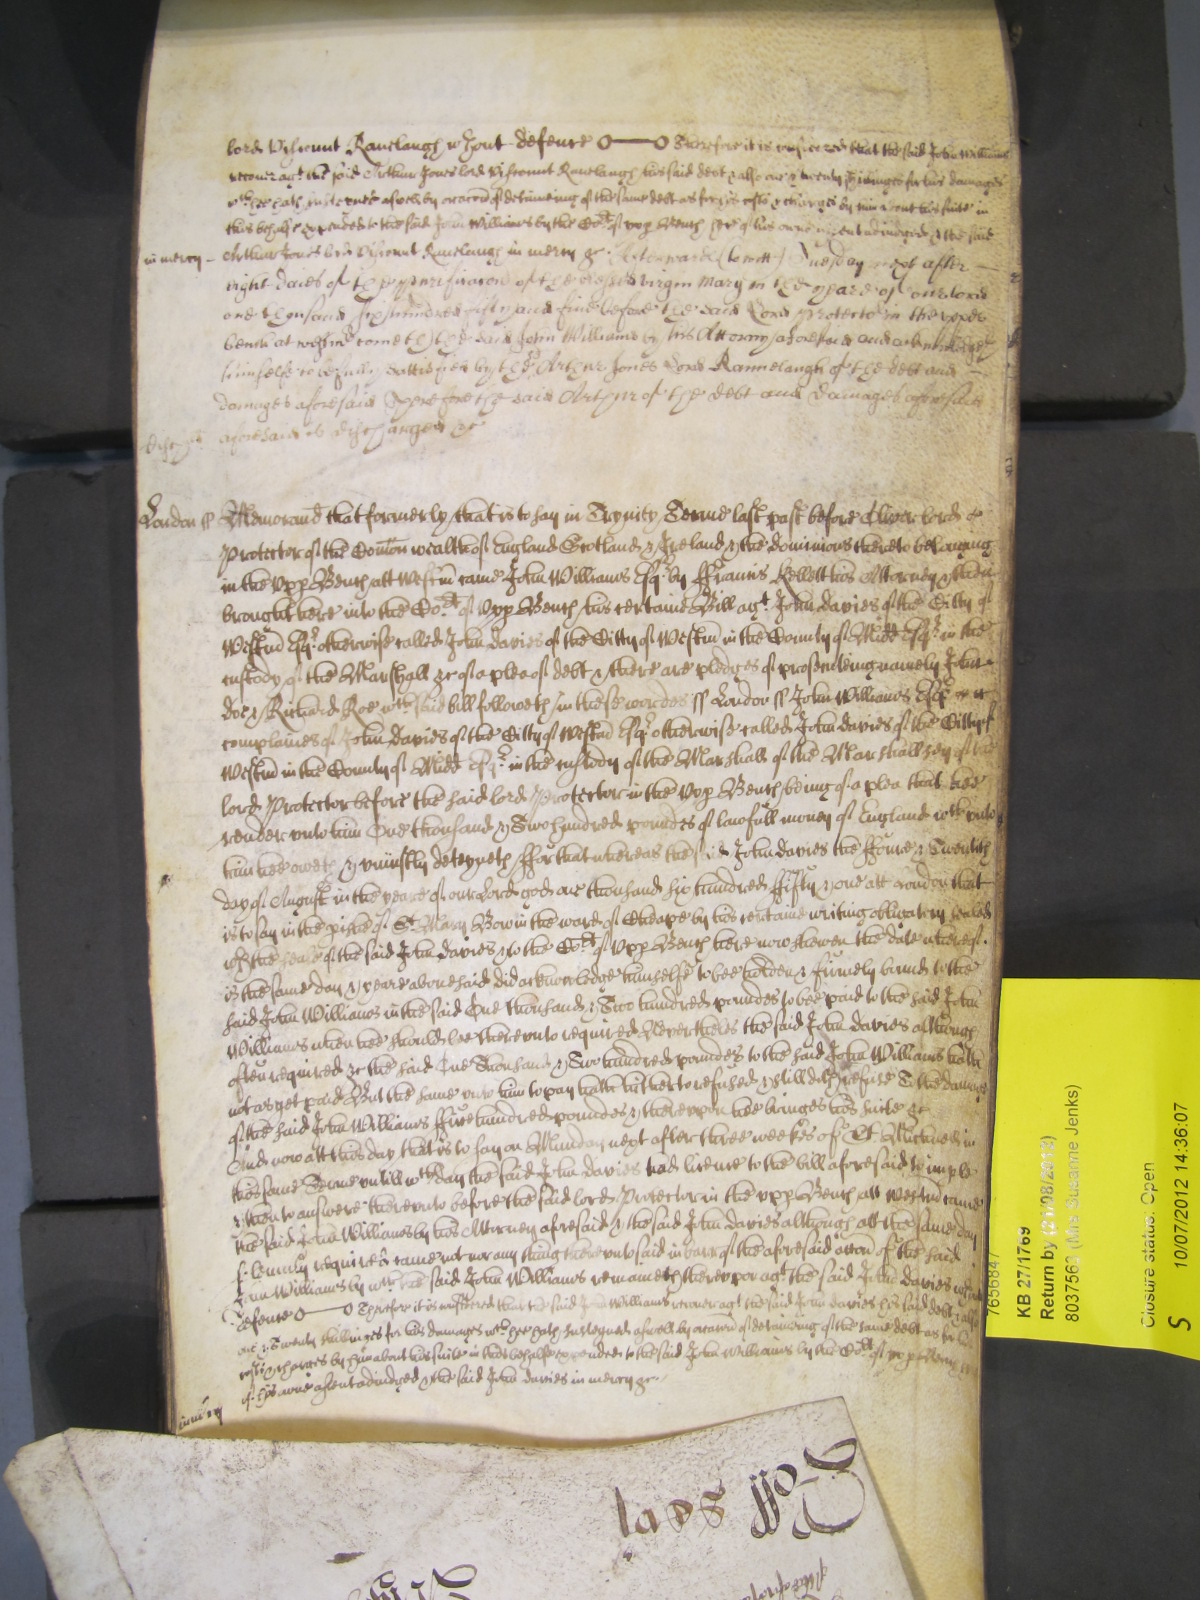 lord Viscount Ranelaugh wthout defence o——o Therefore it is considered that the said John Williams
recover agt. the said Arthur Jones lord Viscount Ranelaugh his said debt & also one & twenty shillings for his damages
wch hee hath susteyned aswell by occacon of deteineing of the same debt as for his costs & charges by him about his suite in
this behalfe expended to the said John Williams by the Cort of upp Bench here of his owne assent adiudged & the said
in mercy – Arthur Jones lord Viscount Ranelaugh in mercy &c Afterwards (to witt) Tuesday next after
eight daies of the purificacon of the blessed virgin Mary in the yeare of our lord
one thousand six hundred fifty and five before the said Lord protector in the upper
bench at westmr cometh the said John Williams by his Attorny aforesaid and acknowledgeth
himselfe to be fully satisfied by the sd Arthur Jones Lord Rannelaugh of the debt and
damages aforesaid Therefore the said Arthur of the debt and damages aforesaid
aforesaid is discharged &c
London ss Memorand that formerly that is to say in Trynity Terme last past before Oliver lord
Protector of the Comon wealth of England Scotland & Ireland & the dominions thereto belonging
in the upp Bench att Westm came John Williams Esqr by ffrancis Kellett his Attorney & then
brought here into the Cort of upp Bench his certaine Bill agt. John Davies of the Citty of
Westm Esqr otherwise called John Davies of the Citty of Westm in the County of Midd Esqr in the
custody of the Marshall &c of a plea of debt & there are pledges of prosecuteing namely John
doe & Richard Roe wch said bill followeth in these wordes ss London ss John Williams Esqr
complaines of John Davies of the Citty of Westm Esqr otherwise called John Davies of the Citty of
Westm in the County of Midd Esqr in the custody of the Marshall of the Marshallsey of the
lord Protector before the said lord Protector in the upp Bench being of a plea that hee
render unto him One thousand & Two hundred poundes of lawfull money of England wch unto
him hee oweth & uniustly deteyneth ffor that whereas the sd John Davies the ffowre & Twentith
day of August in the yeare of our Lord god one thousand six hundred fifty & one att London that
is to say in the pish of St Mary Bow in the ward of Cheape by his certaine writing obligatory sealed
wth the seale of the said John Davies & to the Cort of upp Bench here now shewen the date whereof
is the same day & yeare abovesaid did acknowledge himselfe to bee holden & firmely bound to the
said John Williams in the said One thousand & Two hundred poundes to bee paid to the said John
Williams when hee should bee thereunto required Neverthelesse the said John Davies although
often required &c the said One Thousand & Two hundred poundes to the said John Williams hath
not as yet paid But the same unto him to pay hath hitherto refused & still doth refuse To the damage
of the said John Williams ffive hundred poundes & thereupon hee bringes his suite &c
And now att this day that is to say on Munday next after three weekes of St Michaell in
this same Terme untill wch day the said John Davies had licence to the bill aforesaid to imple
& then to answere thereunto before the said lord Protector in the upp Bench att Westm came
the said John Williams by his Attorney aforesaid & the said John Davies although att the same day
solemnly required came not nor any thing thereunto said in barr of the aforesaid accon of the said
John Williams by wch the said John Williams remaineth thereupon agt. the said John Davies without
defence o——o Therefore it is considered that the said John Williams recover agt. the said John Davies his said debt & also
one & Twenty shillinges for his damages wch hee hath susteyned aswell by occacon of deteineing of the same debt as for his
costs & charges by him about his suite in this behalfe expended to the said John Williams by the Cort of upp Bench here
of his owne assent adiudged & the said John Davies in mercy &c
in mercy
Roll
765684/
KB 27/1769
Return by (21/08/2012)
8037563 (Mrs Susanne Jenks)
Closure status: Open
S 10/07/2012 14:36:07